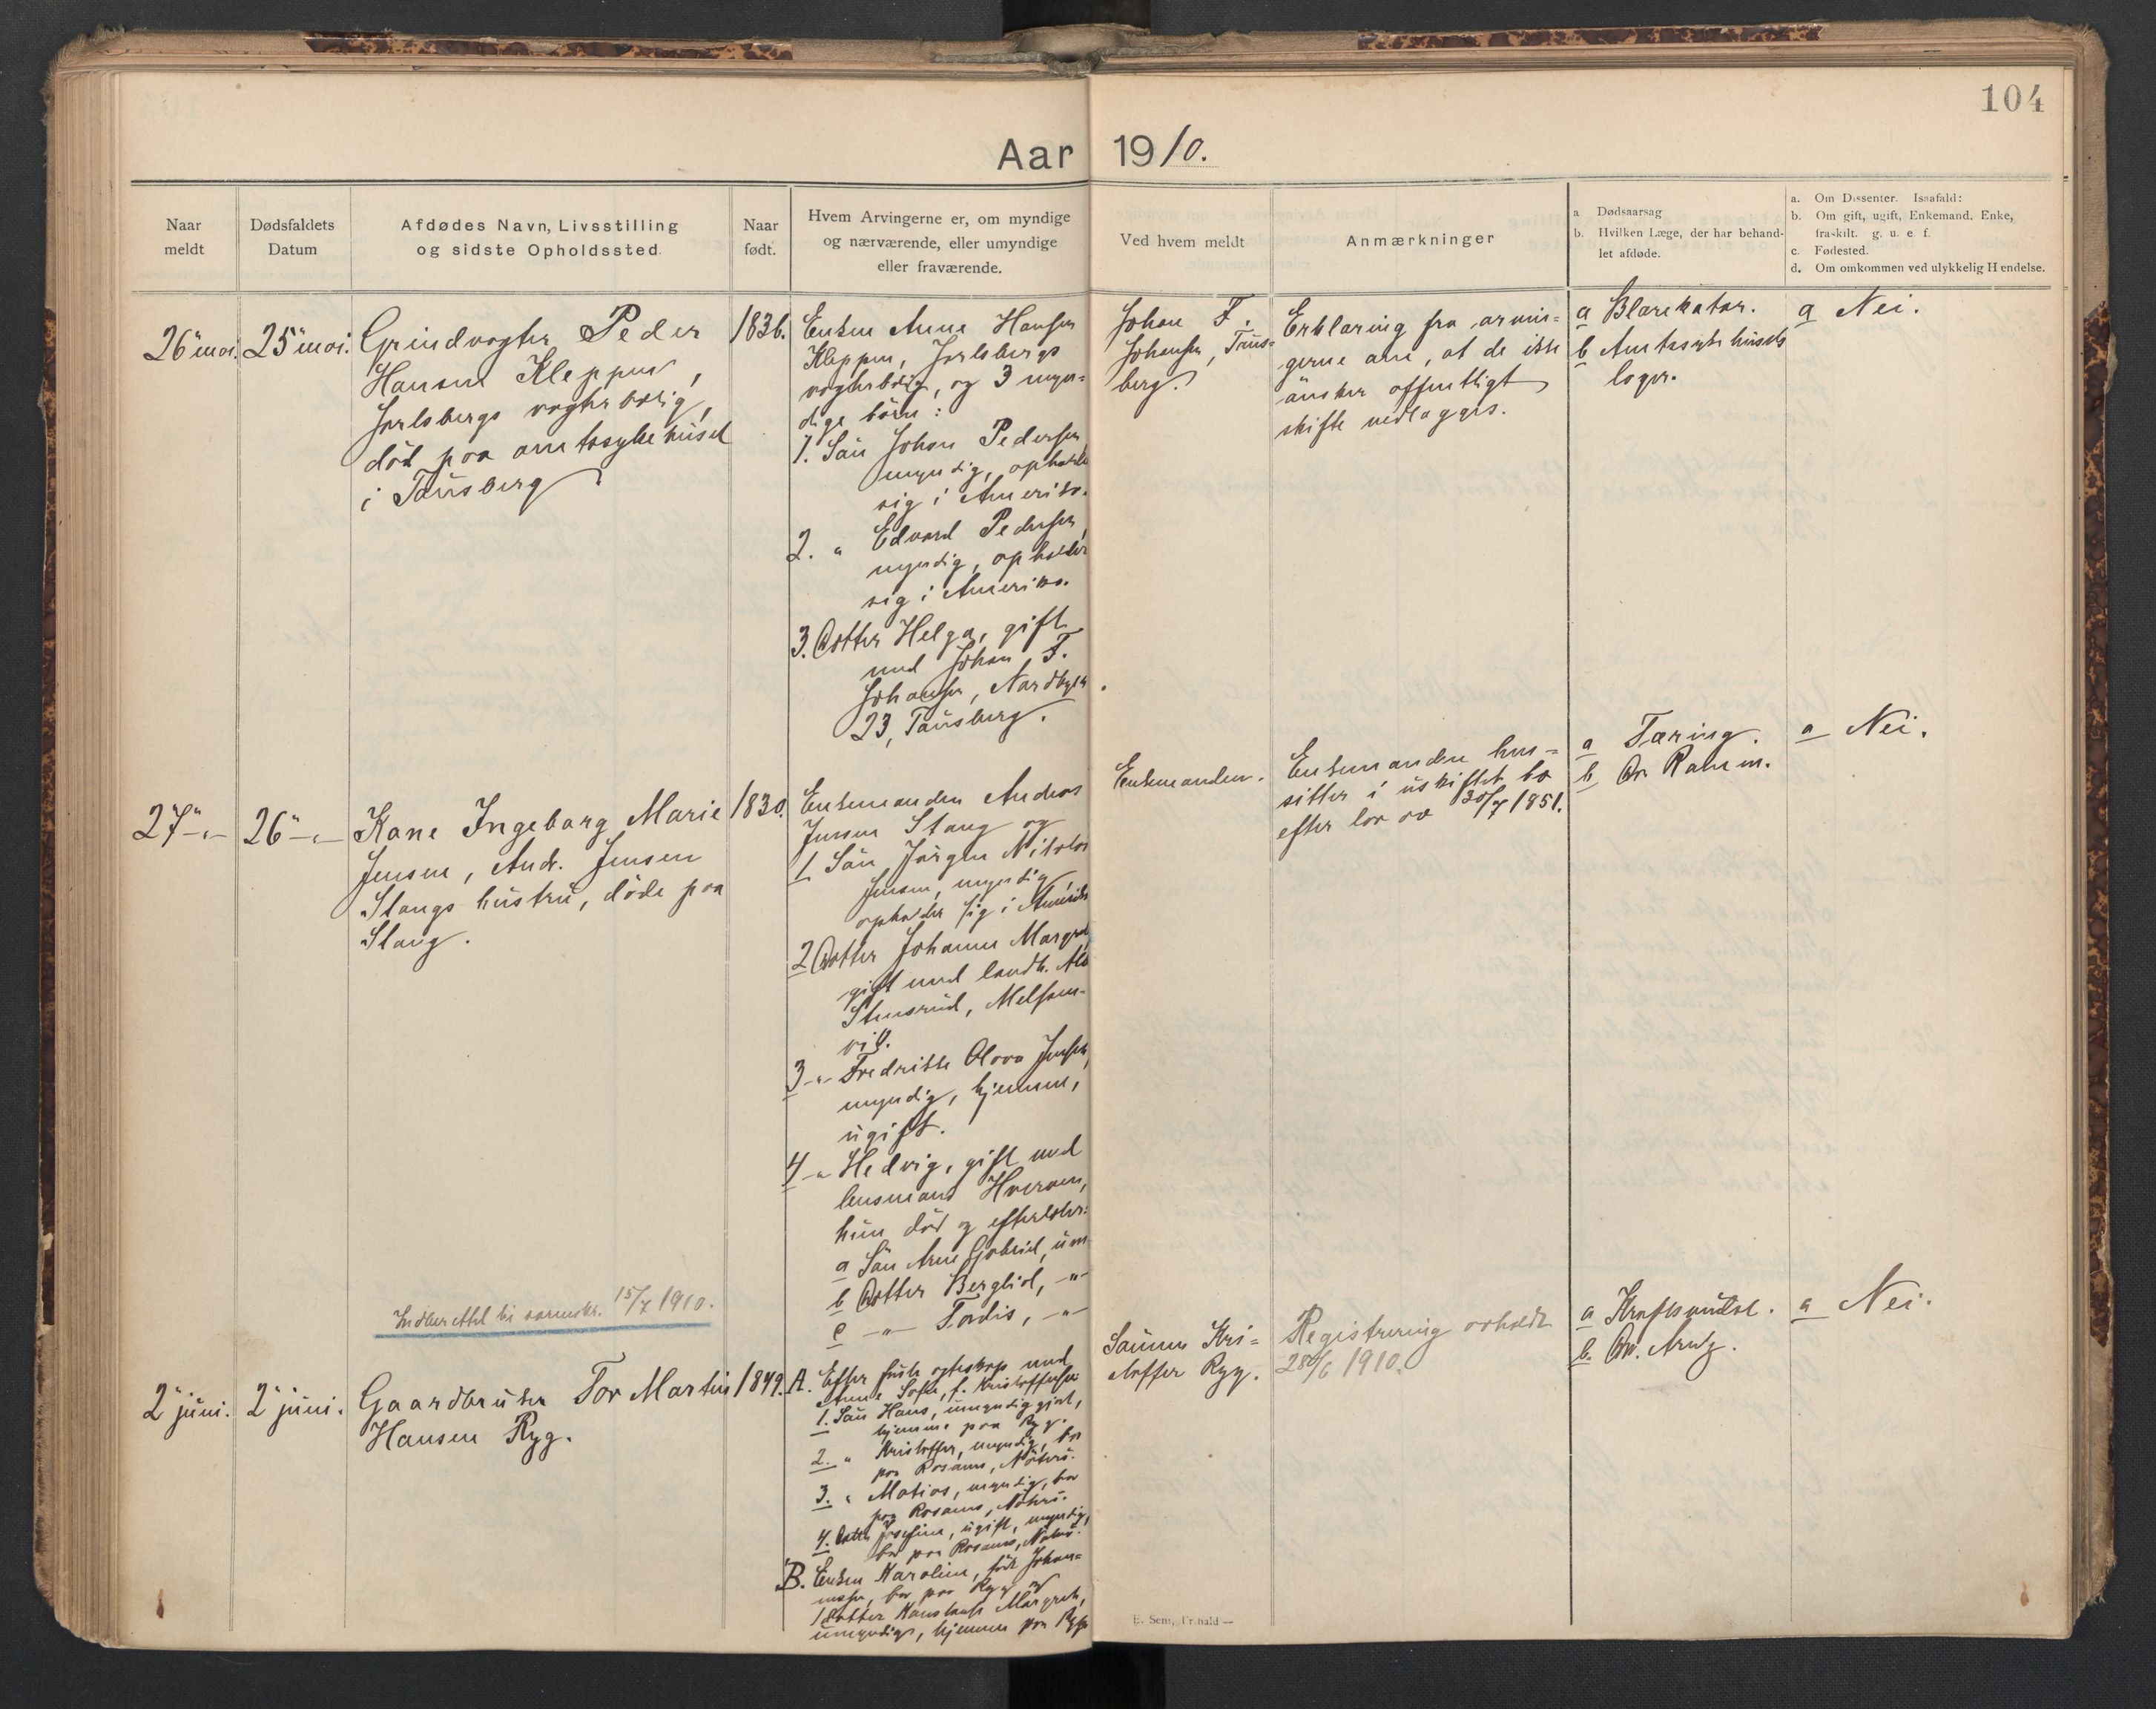 104
Aar 1910.
Naar
meldt
Dødsfaldets
Datum
Afdødes Navn, Livsstilling
og sidste Opholdssted.
Naar
født.
Hvem Arvingerne er, om myndige
og nærværende, eller umyndige
eller fraværende.
Ved hvem meldt
Anmærkninger
a Dødsaarsag
b. Hvilken Læge, der har behand-
let afdøde.
a. Om Dissenter. Isaafald:
b. Om gift, ugift, Enkemand, Enke,
fraskilt. g. u. e. f.
c. Fødested.
d. Om omkommen ved ulykkelig Hendelse.
26 mai.
25 mai.
Grindvogter Peder
Hansen Kleppen,
Jarlsbergs vogterbolig,
död paa amtssykehuset
i Tönsberg
1836.
Enken Anne Hansen
Kleppen, Jarlsbergs
vogterbolig, og 3 myn=
dige börn:
1. Sön Johan Pedersen
myndig, opholder
sig i Amerika.
2. " Edvard Pedersen,
myndig, opholder
sig i Amerika.
3. Datter Helga, gift
med Johan F.
Johansen, Nordbyen
23, Tönsberg.
Johan F.
Johansen, Töns=
berg.
Erklæring fra arvin=
gerne om, at de ikke
önsker offentligt
skifte vedlægges.
a Blærekatar.
b Amtssykehusets
læger.
a Nei.
27 -"-
26 -"-
Kone Ingeborg Marie
Jensen, Andr. Jensen
Stangs hustru, döde paa
Stang.
1830.
Enkemanden Andreas
Jensen Stang og
1 Sön Jörgen Nikolai
Jensen, myndig,
opholder sig i Amerika
2 Datter Johanne Margret
gift med landh.
Stensrud, Melsom-
vik.
3 -"- Fredrikke Olava Jensen,
myndig, hjemme,
ugift.
4 -"- Hedvig, gift med
lensmand Hverven,
hun död og efterlater:
a Sön Arne Gabriel, um
b Datter Bergliot, -"-
c -"- Tordis, -"-
Enkemanden.
Enkemanden hen=
sitter i uskiftet bo
efter lov av 30/7 1851.
a Tæring.
b Dr. Ramm.
a Nei.
Indberettet til sorenskr. 15/7 1910.
2 juni.
2 juni.
Gaardbruker Tor Martin
Hansen Ryg.
1849.
A. Efter förste egteskap med
Anne Sofie, f. Kristoffersen:
1. Sön Hans, umyndiggjort,
hjemme paa Ryg.
2. " Kristoffer, myndig, bor
paa Rosanes, Nöterö.
3. " Matias, myndig, bor
paa Rosanes, Nöterö.
4. Datter Josefine, ugift, myndig,
bor paa Rosanes, Nöterö.
B. Enken Karoline, född Johan=
nesen, bor paa Ryg og
1 Datter Konstanse Margrete,
umyndige, hjemme paa Ryg
Sönnen Kri=
stoffer Ryg.
Registrering avholdt
28/6 1910.
a Kræftsvulst.
b. Dr. Arntz.
a Nei.